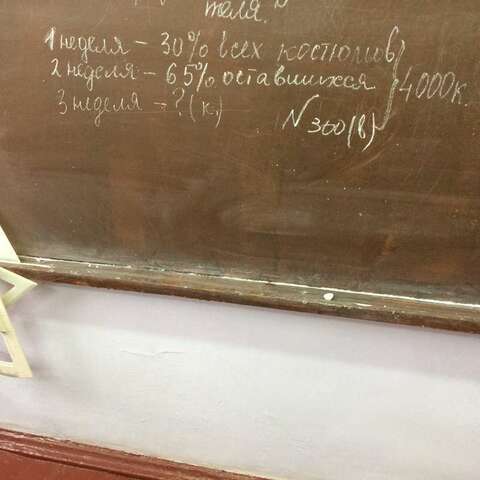 теля.
1 неделя - 30% всех костюмов
2 неделя - 65% оставшихся
4000к.
3 неделя - ? (к.)
N 360(в)